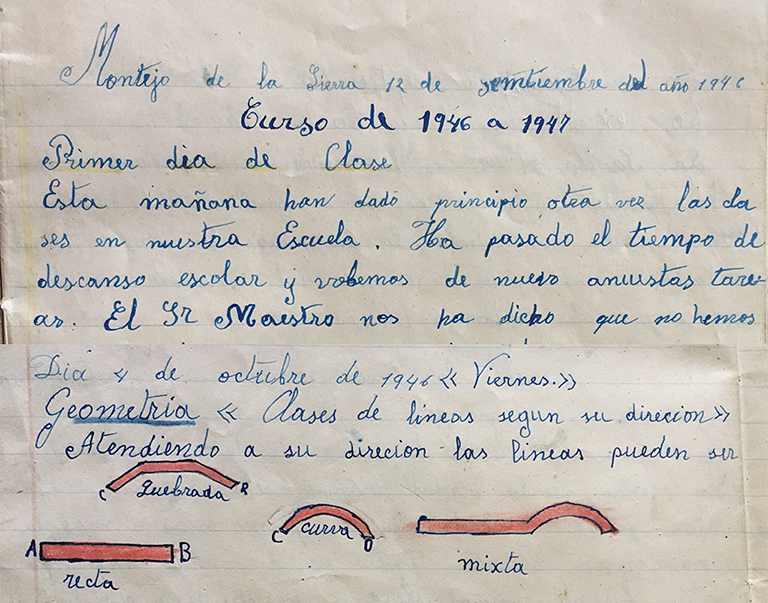 Montejo de la Sierra 12 de semtiembre del año 1946
Curso de 1946 a 1947
Primer dia de Clase
Esta mañana han dado principio otra vez las cla
ses en nuestra Escuela. Ha pasado el tiempo de
descanso escolar y volbemos de nuevo a nuestas tare-
as. El Sr Maestro nos ha dicho que no hemos
Dia 4 de octubre de 1946 « Viernes.»
Geometria « Clases de lineas segun su direcion»
Atendiendo a su direcion las lineas pueden ser
C quebrada R
C curva D
A B
recta
mixta